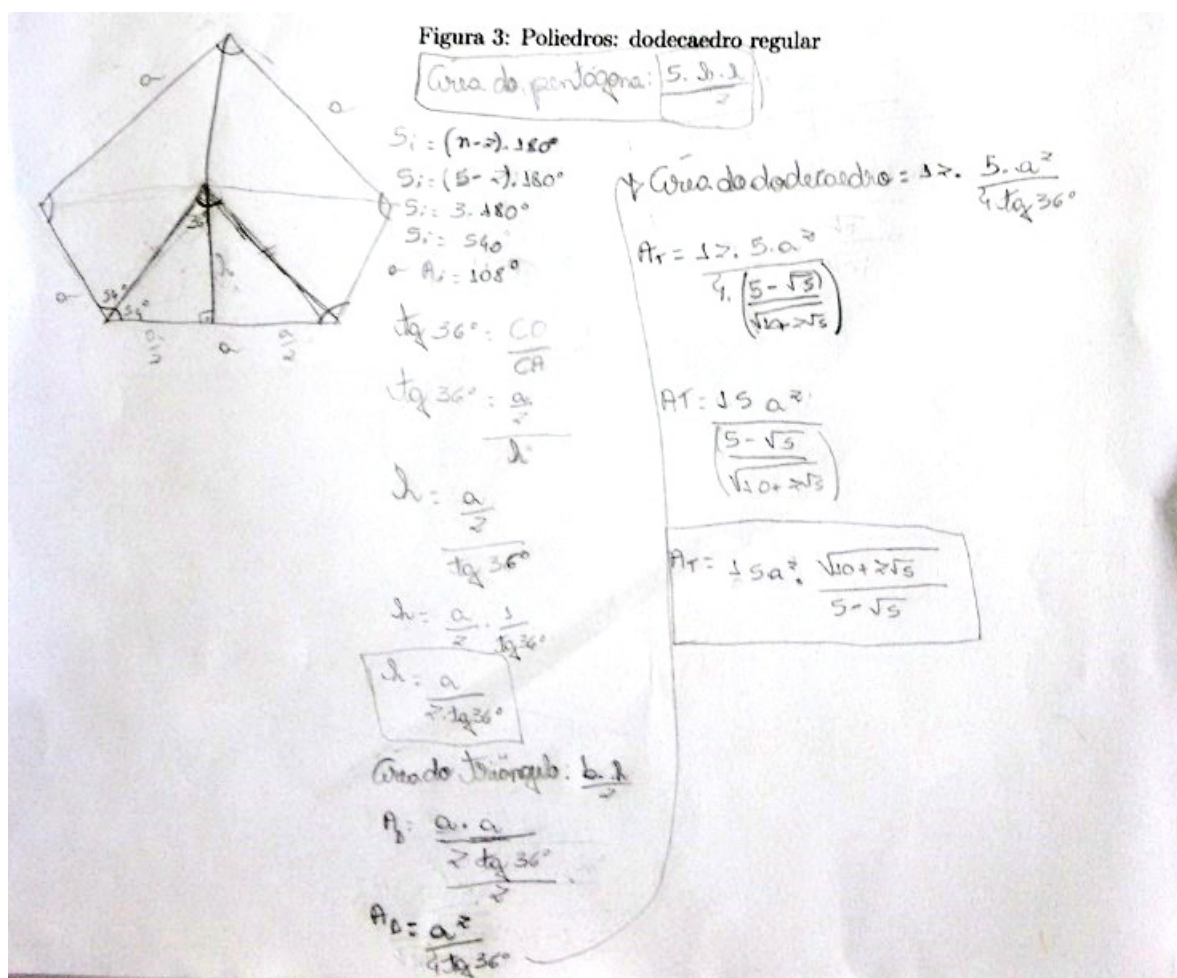 Figura 3: Poliedros: dodecaedro regular
Área do pentágono: 5.b.h/2
a
a
a
a
a
36°
h
54°
54°
a/2
a/2
Si = (n-2).180°
Si = (5-2).180°
Si = 3.180°
Si = 540°
Ai = 108°
tg 36° = CO/CA
tg 36° = (a/2)/h
h = (a/2)/tg 36°
h = a/2 . 1/tg 36°
h = a/(2.tg 36°)
Área do triângulo: b.h/2
A = (a.a/(2 tg 36°))/2
AΔ = a²/(4 tg 36°)
Área do dodecaedro = 12. 5.a²/(4.tg 36°)
AT = 12.5.a²/(4.((5-√5)/√(10+2√5)))
AT = 15a²/((5-√5)/√(10+2√5))
AT = 15a². √(10+2√5)/(5-√5)